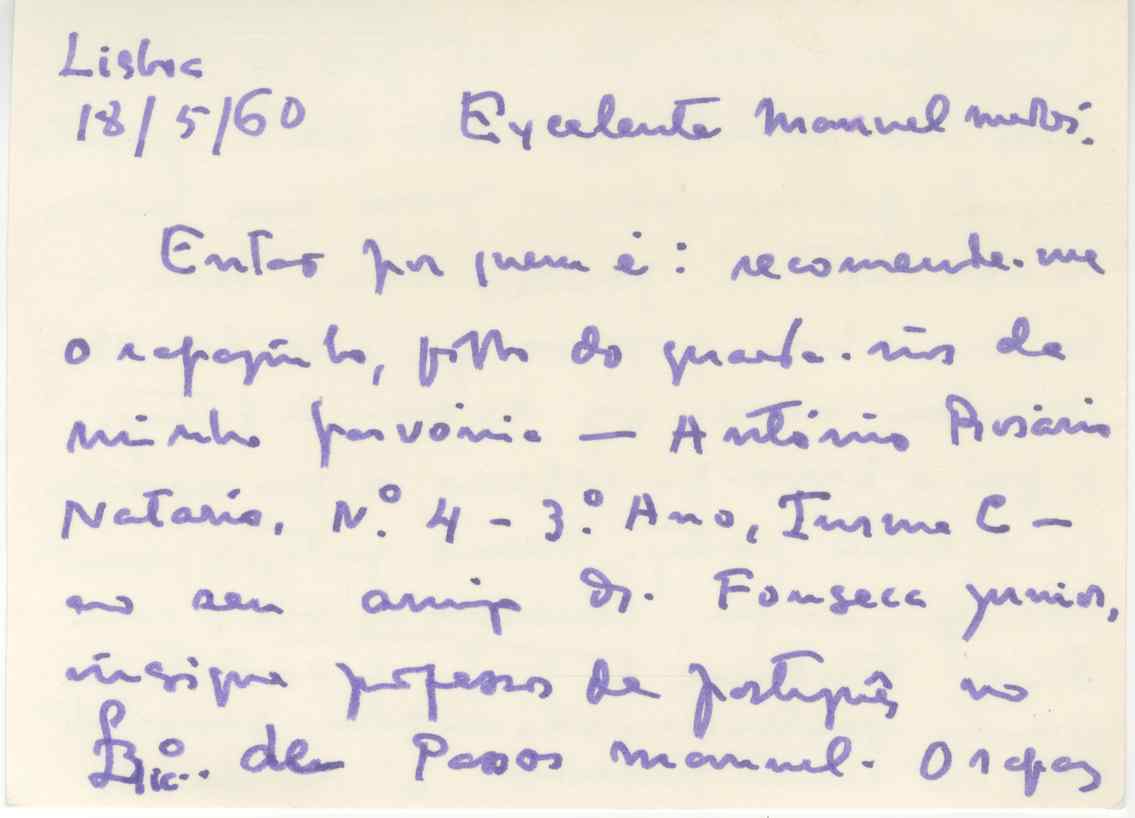 Lisboa
18/5/60 Excelente Manuel
Entao por quem é: recomende-me
o rapazinho, filho do guarda-
minha parvónia — António Rosário
Natario, N.º 4 - 3.º Ano, Turma C —
ao seu amigo Dr. Fonseca junior,
insigne professor de português no
de Passos Manuel. O rapaz